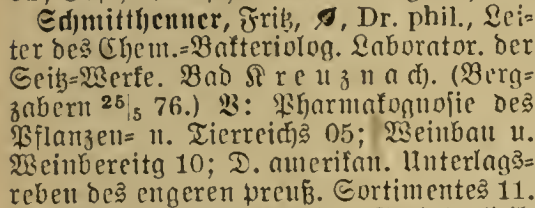 Schmitthenner, Fritz, Dr. phil., Lei-
ter des Chem.=Bakteriolog. Laborator. der
Seitz=Werke. Bad Kreuznach. (Berg-
zabern 25/5 76.) V: Pharmakognosie des
Pflanzen= u. Tierreichs 05; Weinbau u.
Weinbereitg 10; D. amerikan. Unterlags-
reben des engeren preuß. Sortimentes 11.